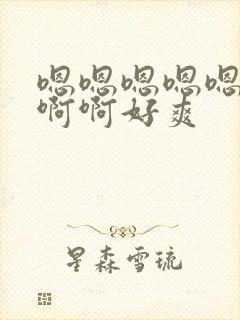 嗯嗯嗯嗯嗯
啊啊好爽
星森雪琉